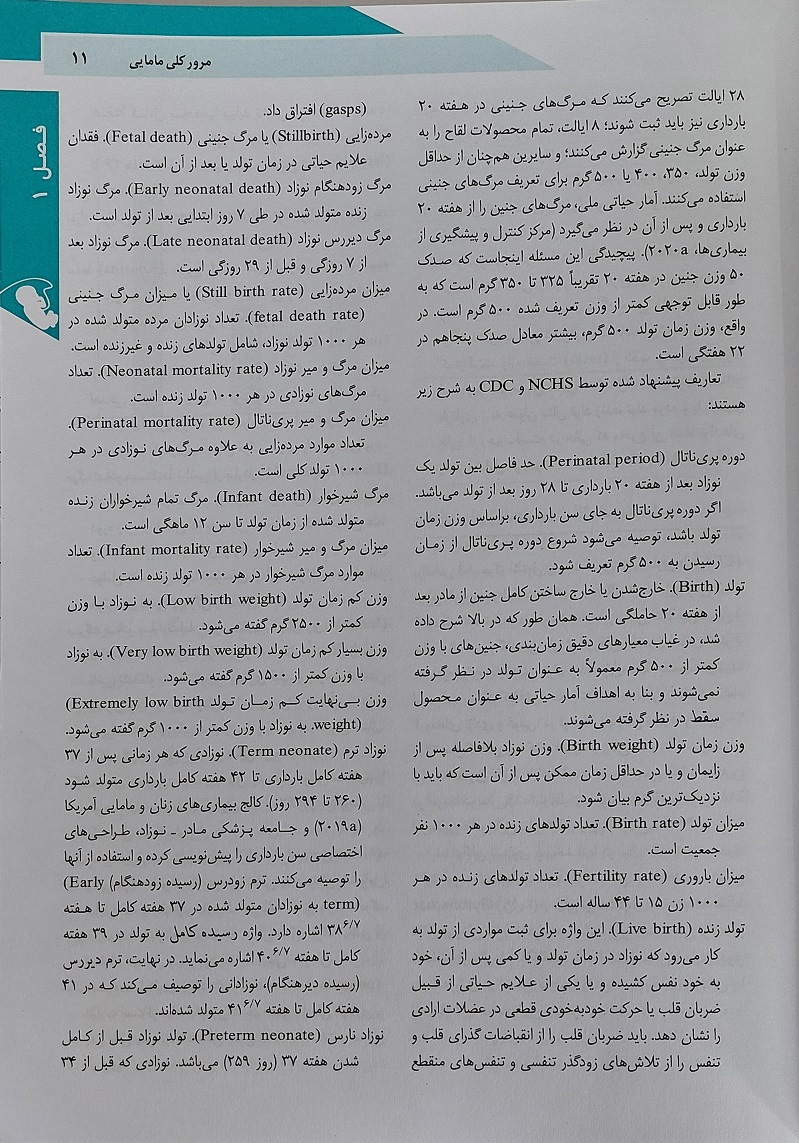 مرور کلی مامایی ۱۱
فصل ۱
۲۸ ایالت تصریح می‌کنند که مرگ‌های جنینی در هفته ۲۰
بارداری نیز باید ثبت شوند؛ ۸ ایالت، تمام محصولات لقاح را به
عنوان مرگ جنینی گزارش می‌کنند؛ و سایرین هم‌چنان از حداقل
وزن تولد، ۳۵۰، ۴۰۰ یا ۵۰۰ گرم برای تعریف مرگ‌های جنینی
استفاده می‌کنند. آمار حیاتی ملی، مرگ‌های جنین را از هفته ۲۰
بارداری و پس از آن در نظر می‌گیرد (مرکز کنترل و پیشگیری از
بیماری‌ها، ۲۰۲۰a). پیچیدگی این مسئله اینجاست که صدک
۵۰ وزن جنین در هفته ۲۰ تقریباً ۳۲۵ تا ۳۵۰ گرم است که به
طور قابل توجهی کمتر از وزن تعریف شده ۵۰۰ گرم است. در
واقع، وزن زمان تولد ۵۰۰ گرم، بیشتر معادل صدک پنجاهم در
۲۲ هفتگی است.
تعاریف پیشنهاد شده توسط NCHS و CDC به شرح زیر
هستند:
دوره پری‌ناتال (Perinatal period). حد فاصل بین تولد یک
نوزاد بعد از هفته ۲۰ بارداری تا ۲۸ روز بعد از تولد می‌باشد.
اگر دوره پری‌ناتال به جای سن بارداری، براساس وزن زمان
تولد باشد، توصیه می‌شود شروع دوره پری‌ناتال از زمان
رسیدن به ۵۰۰ گرم تعریف شود.
تولد (Birth). خارج‌شدن یا خارج ساختن کامل جنین از مادر بعد
از هفته ۲۰ حاملگی است. همان طور که در بالا شرح داده
شد، در غیاب معیارهای دقیق زمان‌بندی، جنین‌های با وزن
کمتر از ۵۰۰ گرم معمولاً به عنوان تولد در نظر گرفته
نمی‌شوند و بنا به اهداف آمار حیاتی به عنوان محصول
سقط در نظر گرفته می‌شوند.
وزن زمان تولد (Birth weight). وزن نوزاد بلافاصله پس از
زایمان و یا در حداقل زمان ممکن پس از آن است که باید با
نزدیک‌ترین گرم بیان شود.
میزان تولد (Birth rate). تعداد تولدهای زنده در هر ۱۰۰۰ نفر
جمعیت است.
میزان باروری (Fertility rate). تعداد تولدهای زنده در هر
۱۰۰۰ زن ۱۵ تا ۴۴ ساله است.
تولد زنده (Live birth). این واژه برای ثبت مواردی از تولد به
کار می‌رود که نوزاد در زمان تولد و یا کمی پس از آن، خود
به خود نفس کشیده و یا یکی از علایم حیاتی از قبیل
ضربان قلب یا حرکت خودبه‌خودی قطعی در عضلات ارادی
را نشان دهد. باید ضربان قلب را از انقباضات گذرای قلب و
تنفس را از تلاش‌های زودگذر تنفسی و تنفس‌های منقطع
(gasps) افتراق داد.
مرده‌زایی (Stillbirth) یا مرگ جنینی (Fetal death). فقدان
علایم حیاتی در زمان تولد یا بعد از آن است.
مرگ زودهنگام نوزاد (Early neonatal death). مرگ نوزاد
زنده متولد شده در طی ۷ روز ابتدایی بعد از تولد است.
مرگ دیررس نوزاد (Late neonatal death). مرگ نوزاد بعد
از ۷ روزگی و قبل از ۲۹ روزگی است.
میزان مرده‌زایی (Still birth rate) یا میزان مرگ جنینی
(fetal death rate). تعداد نوزادان مرده متولد شده در
هر ۱۰۰۰ تولد نوزاد، شامل تولدهای زنده و غیرزنده است.
میزان مرگ و میر نوزاد (Neonatal mortality rate). تعداد
مرگ‌های نوزادی در هر ۱۰۰۰ تولد زنده است.
میزان مرگ و میر پری‌ناتال (Perinatal mortality rate).
تعداد موارد مرده‌زایی به علاوه مرگ‌های نوزادی در هر
۱۰۰۰ تولد کلی است.
مرگ شیرخوار (Infant death). مرگ تمام شیرخواران زنده
متولد شده از زمان تولد تا سن ۱۲ ماهگی است.
میزان مرگ و میر شیرخوار (Infant mortality rate). تعداد
موارد مرگ شیرخوار در هر ۱۰۰۰ تولد زنده است.
وزن کم زمان تولد (Low birth weight). به نوزاد با وزن
کمتر از ۲۵۰۰ گرم گفته می‌شود.
وزن بسیار کم زمان تولد (Very low birth weight). به نوزاد
با وزن کمتر از ۱۵۰۰ گرم گفته می‌شود.
وزن بی‌نهایت کم زمان تولد (Extremely low birth
weight). به نوزاد با وزن کمتر از ۱۰۰۰ گرم گفته می‌شود.
نوزاد ترم (Term neonate). نوزادی که هر زمانی پس از ۳۷
هفته کامل بارداری تا ۴۲ هفته کامل بارداری متولد شود
(۲۶۰ تا ۲۹۴ روز). کالج بیماری‌های زنان و مامایی آمریکا
(۲۰۱۹a) و جامعه پزشکی مادر ـ نوزاد، طراحی‌های
اختصاصی سن بارداری را پیش‌نویسی کرده و استفاده از آنها
را توصیه می‌کنند. ترم زودرس (رسیده زودهنگام) (Early
term) به نوزادان متولد شده در ۳۷ هفته کامل تا هفته
۳۸۶/۷ اشاره دارد. واژه رسیده کامل به تولد در ۳۹ هفته
کامل تا هفته ۴۰۶/۷ اشاره می‌نماید. در نهایت، ترم دیررس
(رسیده دیرهنگام)، نوزادانی را توصیف می‌کند که در ۴۱
هفته کامل تا هفته ۴۱۶/۷ متولد شده‌اند.
نوزاد نارس (Preterm neonate). تولد نوزاد قبل از کامل
شدن هفته ۳۷ (روز ۲۵۹) می‌باشد. نوزادی که قبل از ۳۴